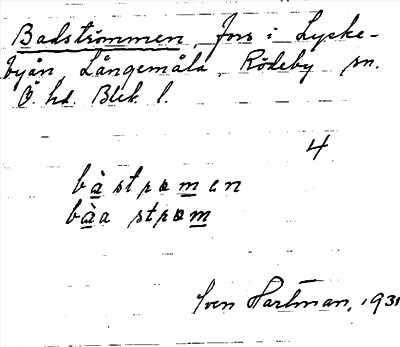 Badströmmen, fors i Lycke-
byån Långemåla, Rödeby sn.
Ö. hd. Blek. l.
4
bàstrœmen
bàa strœm
Sven Hartman, 1931